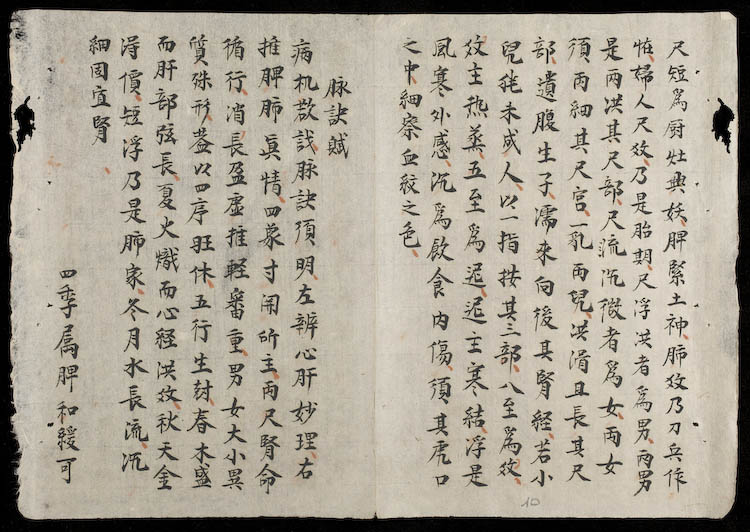 尺短爲厨灶與妖脾緊土神肺数乃刀兵作
怪婦人尺数乃是胎期尺浮洪者爲男两男
是两洪其尺部尺疏沉微者爲女两女
須两細其尺宮一乳两兒洪滑且長其尺
部遺腹生子濡來向後其腎經若小
兒未成人以一指按其三部八至爲数
数主热蒸五至爲迟迟主寒結浮是
風寒外感沉爲飲食内傷須其虎口
之中細察血紋之色
脉訣賦
病机欲脉訣須明左辨心肝妙理右
推脾肺眞情四象寸関所主两尺腎命
循行消長盈虚推軽審重男女大小異
質殊形葢以四序旺休五行生尅春木盛
而肝部弦長夏火熾而心経洪数秋天金
淂價短浮乃是肺家冬月水長流沉
細固宜腎
四季属脾和緩可
10